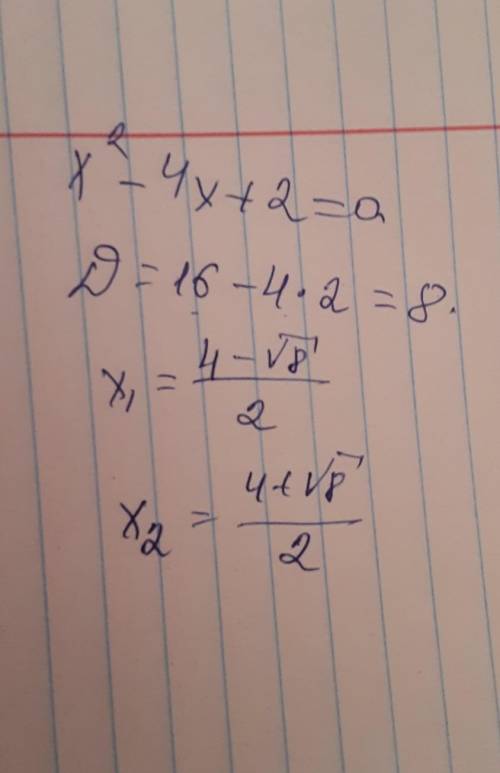 x² - 4x + 2 = 0
D = 16 - 4 · 2 = 8.
x₁ = (4 - √8) / 2
x₂ = (4 + √8) / 2